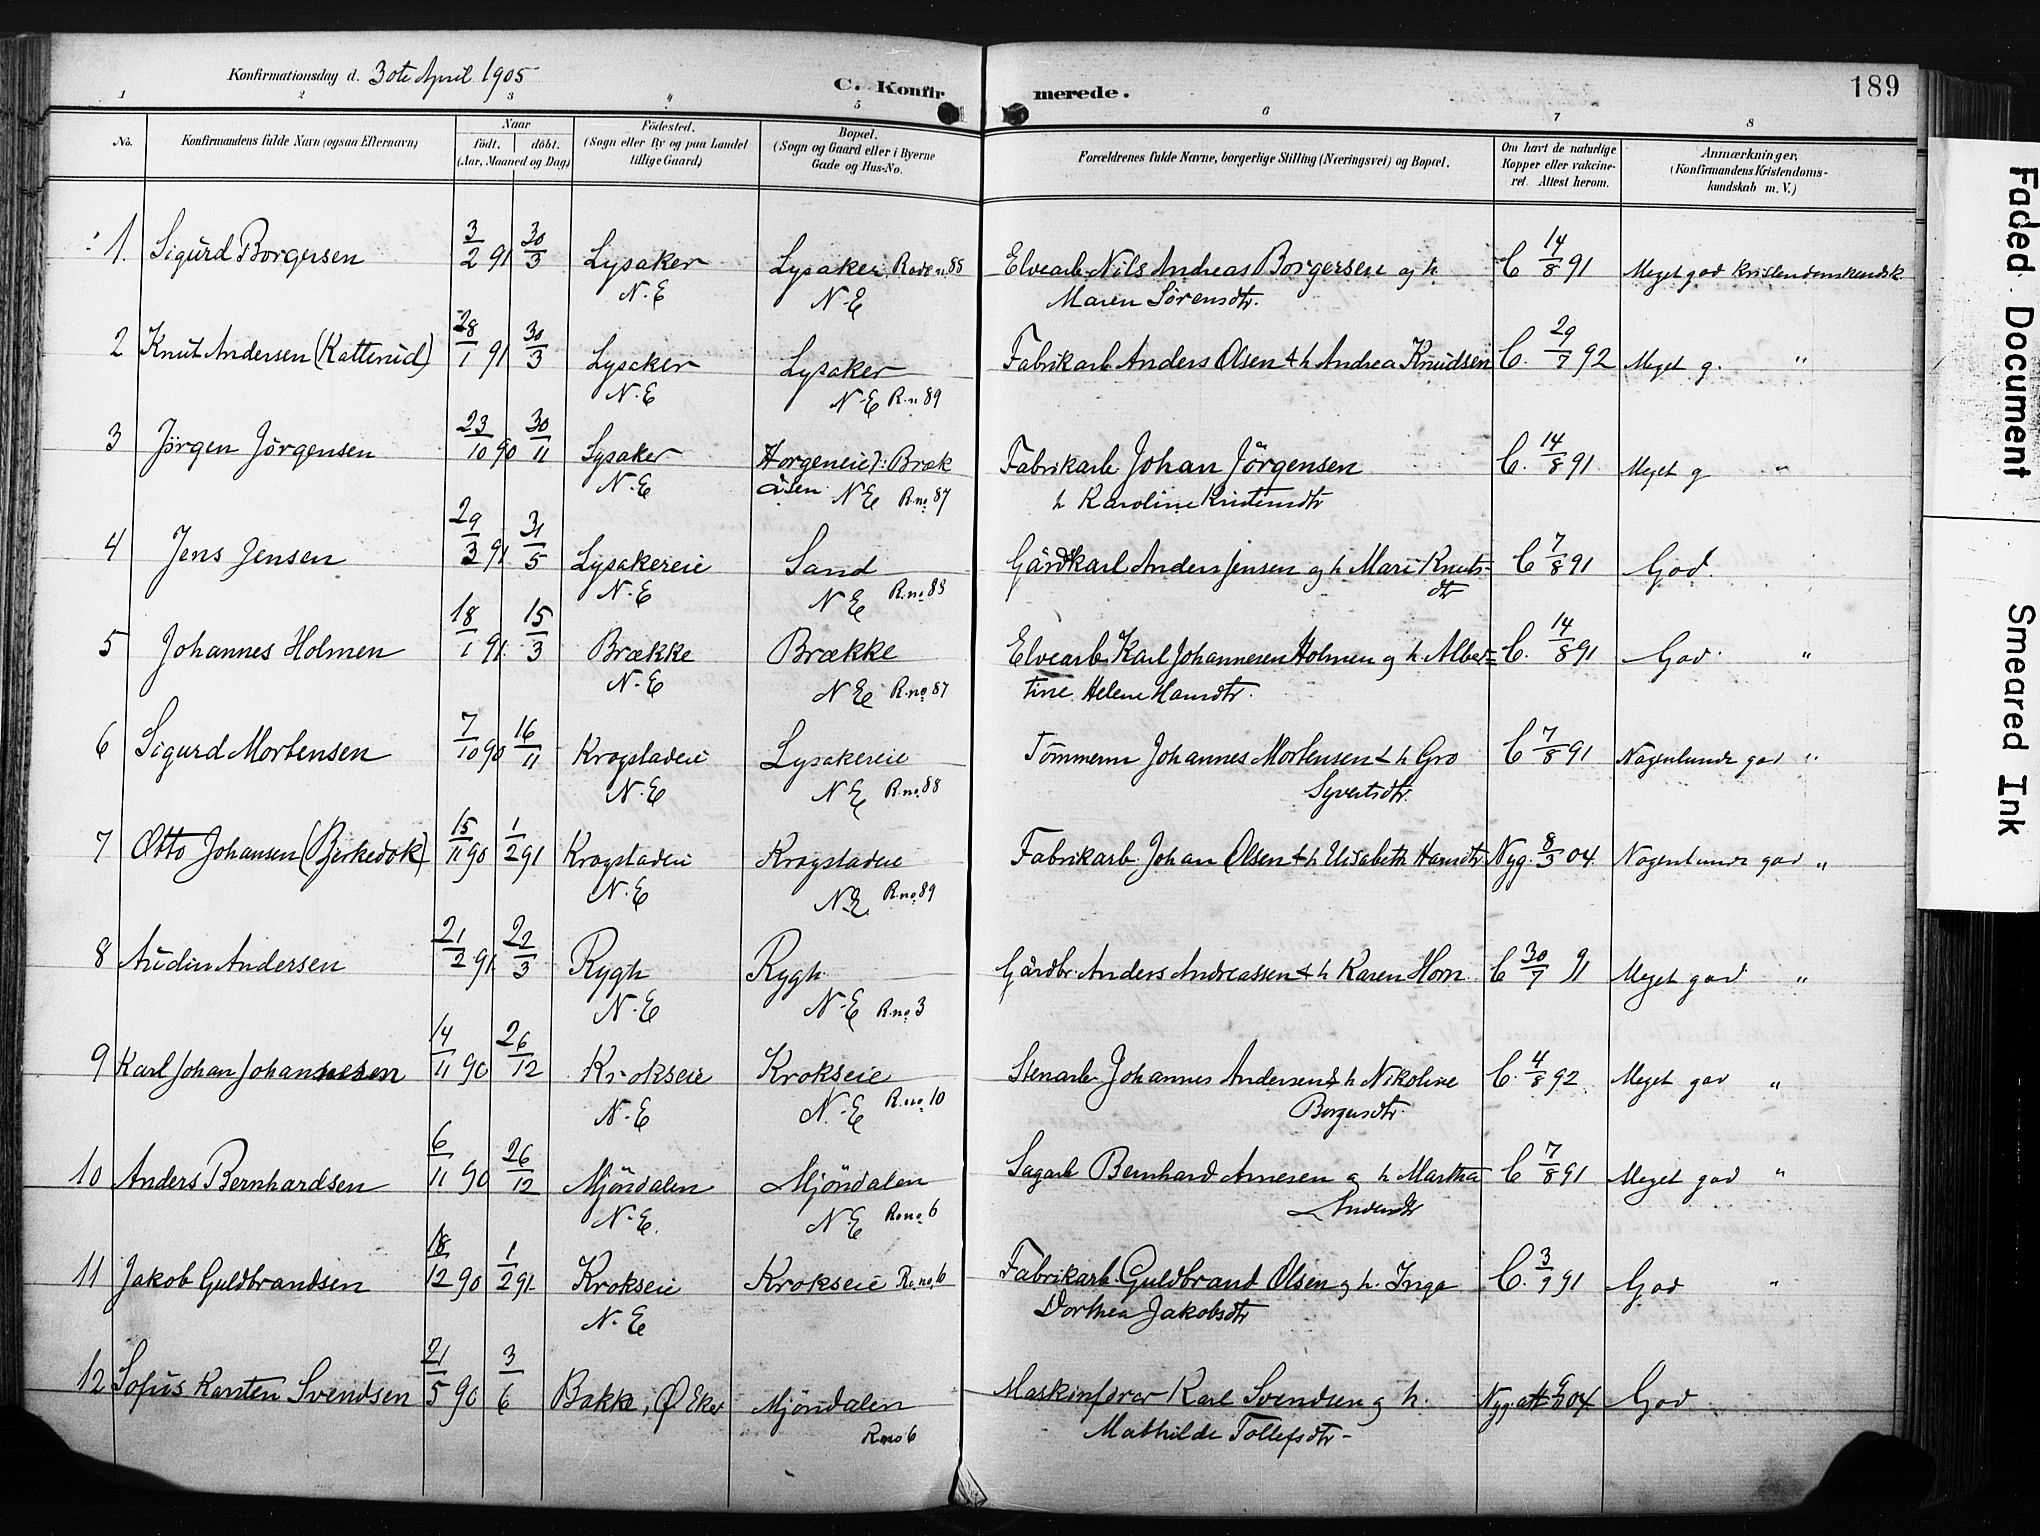 Konfirmationsdag d. 30te April 1905
C. Konfirmerede.
189
1 2 3 " 5 6 7 8
No.
Konfirmandens fulde Navn (ogsaa Efternavn)
Naar
født. døbt.
(Aar, Maaned og Dag)
Fødested.
(Sogn eller By og paa Landet
tillige Gaard)
Bopæl.
(Sogn og Gaard eller i Byerne
Gade og Hus-No.
Forældrenes fulde Navne, borgerlige Stilling (Næringsvei) og Bopæl.
Om havt de naturlige
Kopper eller vakcine-
ret. Attest herom.
Anmærkninger,
(Konfirmandens Kristendoms-
kundskab m. V.)
1. Sigurd Borgersen 3/2 91 30/3 Lysaker N.E Lysaker Rode n. 88 N-E Elvearb. Nils Andreas Borgersen og h. C 14/8 91 Meget god Kristendomskundsk
Maren Sörensdtr.
2 Knut Andersen (Katterud) 28/1 91 30/3 Lysaker N.E Lysaker N-E R.n. 89 Fabrikarb Anders Olsen & h Andrea Knudsen C. 29/7 92 Meget g. "
3 Jörgen Jörgensen 23/10 90 30/11 Lysaker N.E Horgeneie): Bræk
åsen N E R.no. 87 Fabrikarb Johan Jörgensen C. 14/8 91 Meget g "
h Karoline Kristensdtr
4 Jens Jensen 29/3 91 31/5 Lysakereie N.E Sand N E R.no. 88 Gårdkarl Anders Jensen og h Mari Knuts- C 7/8 91 God.
dtr
5 Johannes Holmen 18/1 91 15/3 Brække N.E Brække N E R.no. 87 Elvearb Karl Johannesen Holmen og h Alber= C. 14/8 91 God. "
tine Helene Hansdtr.
6 Sigurd Mortensen 7/10 90 16/11 Krogstadeie N.E Lysakereie N E R.no. 88 Tömmerm Johannes Mortensen & h Gro C 7/8 91 Nogenlunde god "
Syvertsdtr.
7 Otto Johansen (Birkedok) 15/11 90 1/2 91 Krogstadeie N.E Krogstadeie N.E. R.no. 89 Fabrikarb Johan Olsen & h Elisabeth Hansdtr Nyg. 8/3 04 Nogenlunde god "
8 Audin Andersen 21/2 91 22/3 Rygh N.E Rygh N.E R.no. 3 Gårdbr Anders Andreassen & h Karen Horn. C 30/7 91 Meget god "
9 Karl Johan Johannesen 14/11 90 26/12 Krokseie N.E Krokseie N.E R.no. 10 Stenarb Johannes Andersen & h Nikoline C. 4/8 92 Meget god "
Borgersdtr.
10 Anders Bernhardsen 6/11 90 26/12 Mjöndalen N.E. Mjöndalen N E R.no. 6 Sagarb Bernhard Arnesen og h Martha C 7/8 91 Meget god "
Andersdtr
11 Jakob Guldbrandsen 18/12 90 1/2 91 Krokseie N.E Krokseie R.no. 6 Fabrikarb. Guldbrand Olsen og h. Inge C. 3/9 91 God "
Dorthea Jakobsdtr
12 Sofus Karsten Svendsen 21/5 90 3/6 Bakke, Ø Eker Mjöndalen R.no 6 Maskinförer Karl Svendsen og h. Nyg. att 04. God
Mathilde Tollefsdtr-
Faded Document
Smeared Ink